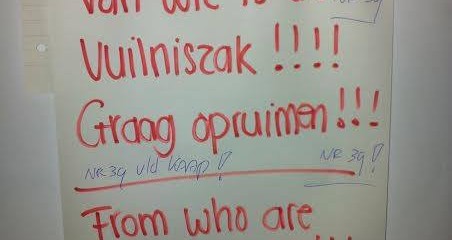 van wie is de
Nr 39
Vuilniszak !!!!
Graag opruimen!!!
NR 39 v/d KAAP!
NR 39!
From who are